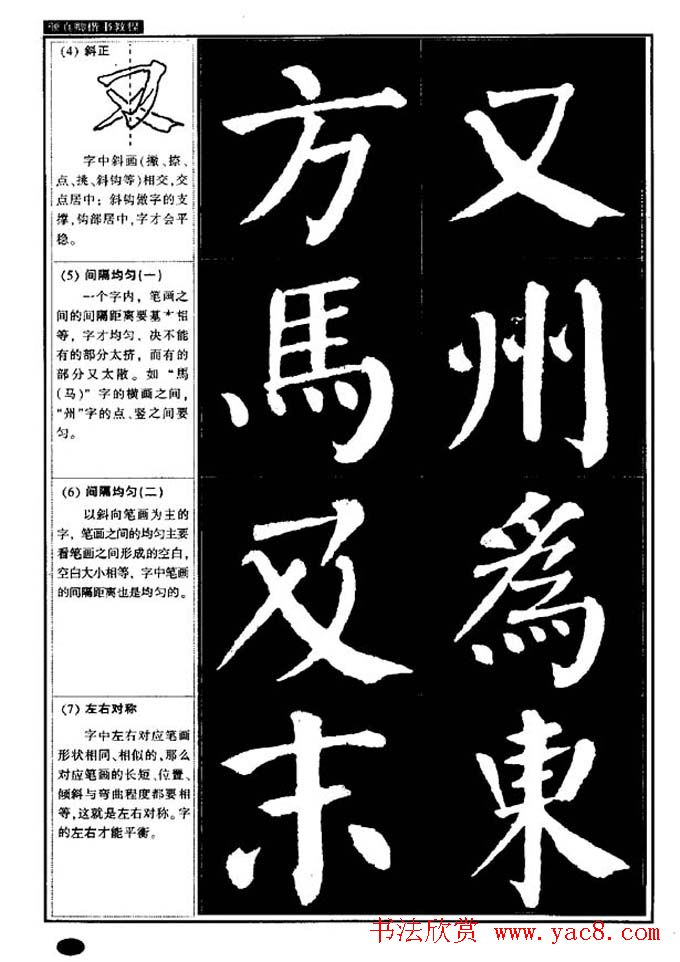 颜真卿楷书教程
(4) 斜正
字中斜画(撇、捺、
点、挑、斜钩等)相交,交
点居中;斜钩做字的支
撑,钩部居中,字才会平
稳。
(5) 间隔均匀(一)
一个字内,笔画之
间的间隔距离要基本相
等,字才均匀、决不能
有的部分太挤,而有的
部分又太散。如“馬
(马)”字的横画之间,
“州”字的点、竖之间要
匀。
(6) 间隔均匀(二)
以斜向笔画为主的
字,笔画之间的均匀主要
看笔画之间形成的空白,
空白大小相等,字中笔画
的间隔距离也是均匀的。
(7) 左右对称
字中左右对应笔画
形状相同、相似的,那么
对应笔画的长短、位置、
倾斜与弯曲程度都要相
等,这就是左右对称。字
的左右才能平衡。
又
方
又
州
馬
為
及
東
末
书法欣赏 www.yac8.com